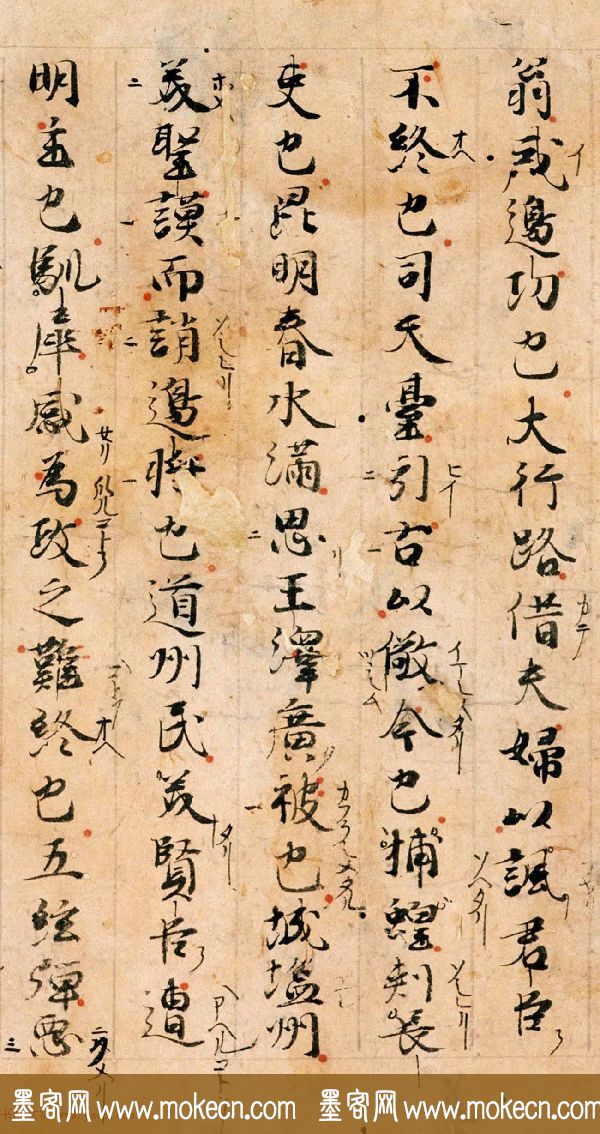 翁戒邊功也大行路借夫婦以諷君臣
不終也司天臺引古以儆今也捕蝗刺長
吏也昆明春水滿思王澤廣被也城塩州
美聖謨而誚邊將也道州民美賢臣遭
明主也馴犀感為政之難終也五絃彈惡
墨客网 www.mokecn.com 墨客网 www.mokecn.com